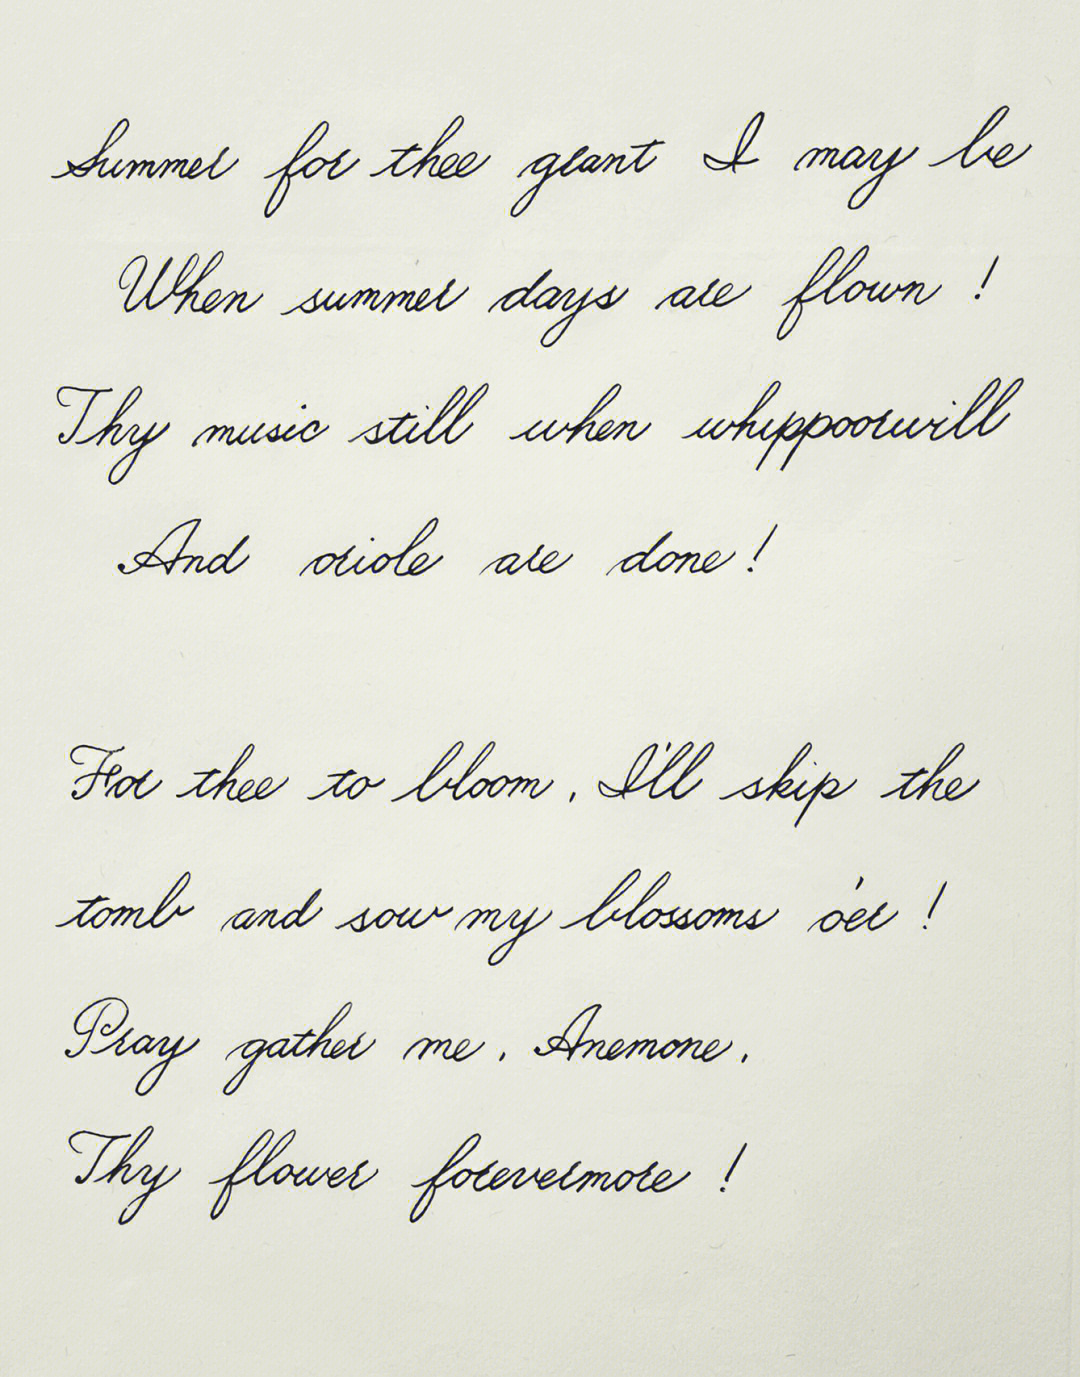 Summer for thee grant I may be
When summer days are flown !
Thy music still when whippoorwill
And oriole are done !
For thee to bloom , I'll skip the
tomb and sow my blossoms o'er !
Pray gather me , Anemone ,
Thy flower forevermore !